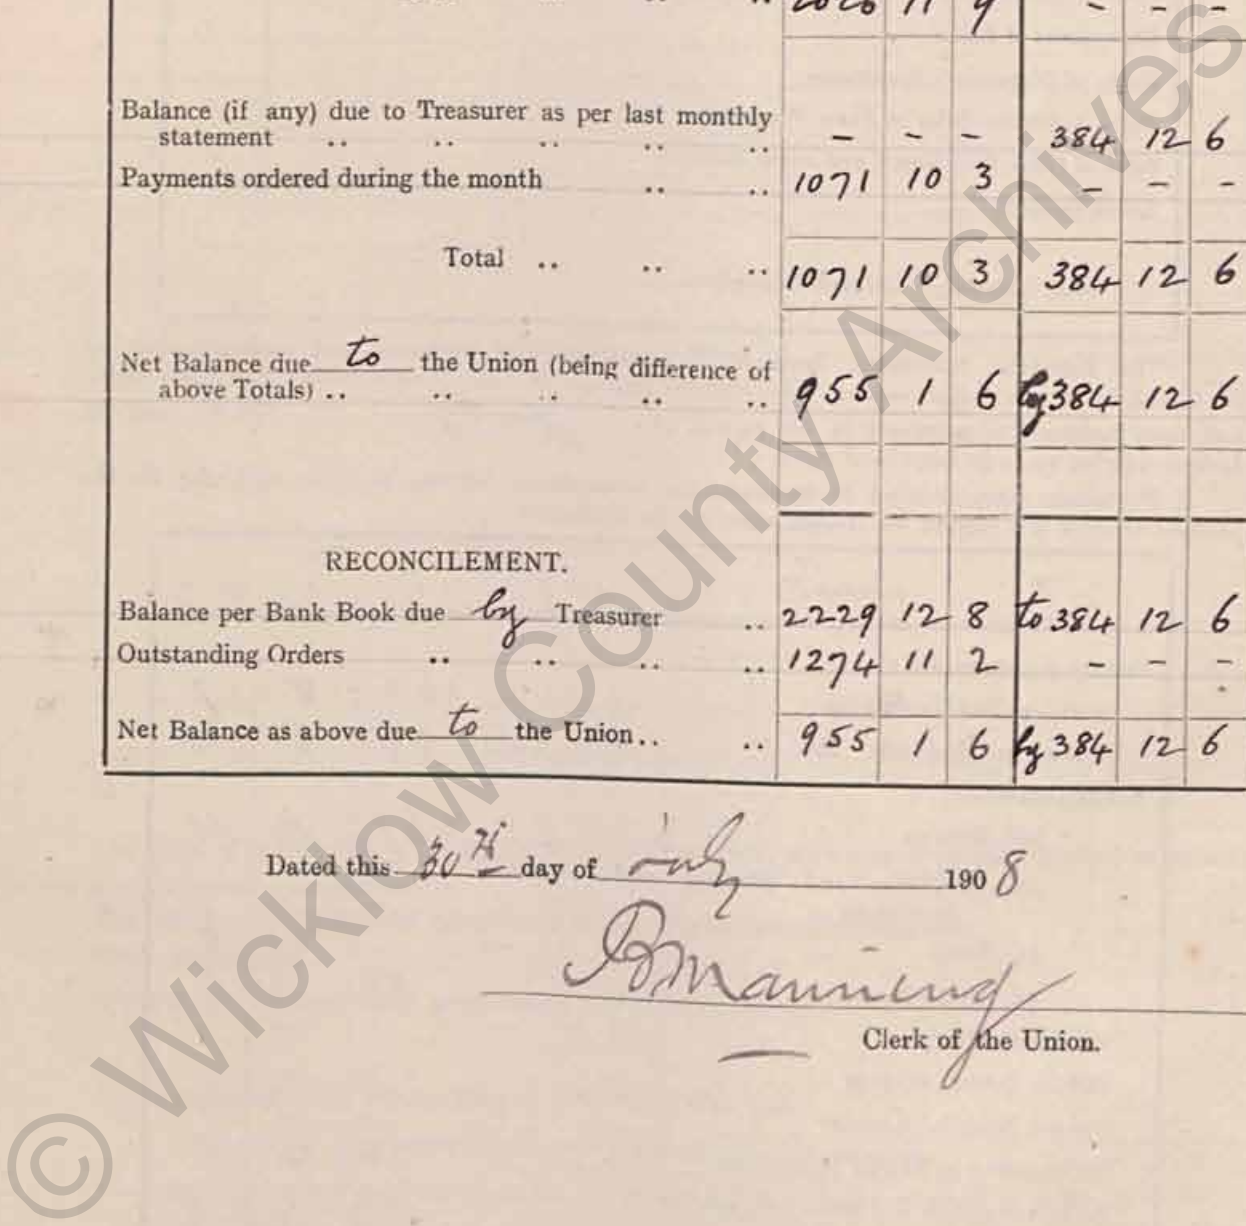 2026 11 9 - - -
Balance (if any) due to Treasurer as per last monthly
statement .. .. .. .. .. - - - 384 12 6
Payments ordered during the month .. .. 1071 10 3 - - -
Total .. .. .. 1071 10 3 384 12 6
Net Balance due to the Union (being difference of
above Totals) .. .. .. .. .. 955 1 6 by 384 12 6
RECONCILEMENT.
Balance per Bank Book due by Treasurer .. 2229 12 8 to 384 12 6
Outstanding Orders .. .. .. .. 1274 11 2 - - -
Net Balance as above due to the Union .. .. 955 1 6 by 384 12 6
Dated this 30th day of July 1908
B Manning
Clerk of the Union.
© Wicklow County Archives